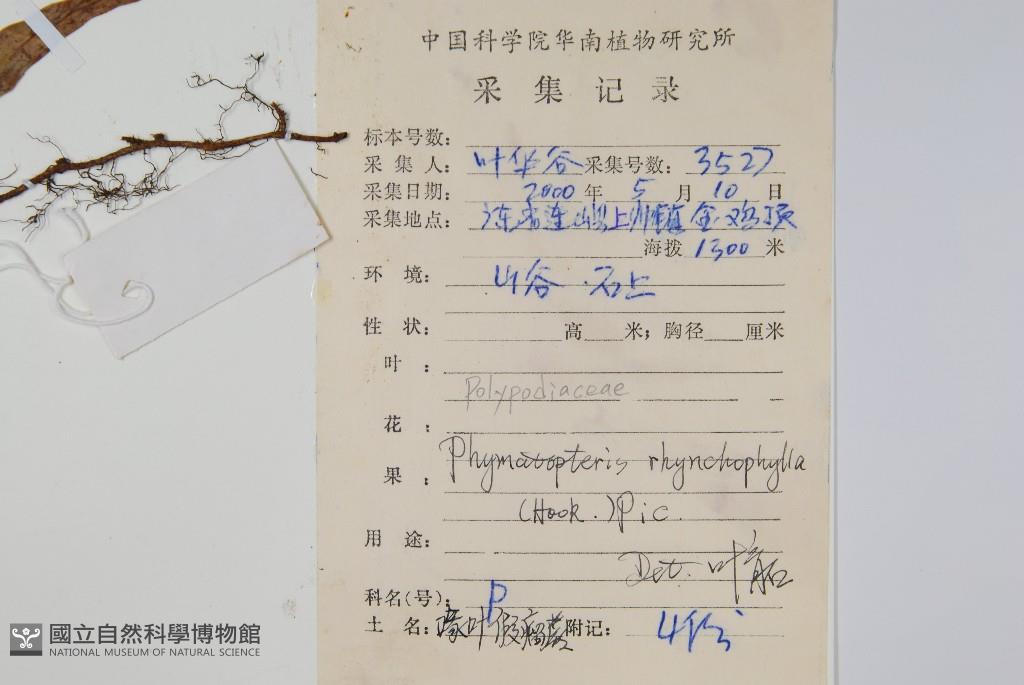 中国科学院华南植物研究所
采集记录
标本号数：
采集人：叶华谷 采集号数：3527
采集日期：2000年5月10日
采集地点：连山县上帅镇金鸡顶
海拨1300米
环境：山谷.石上
性状：高 米；胸径 厘米
叶：
Polypodiaceae
花：
Phymatopteris rhynchophylla
果：
(Hook.) Pic.
用途：
Det. 叶育石
科名(号)：P
土名：喙叶假瘤蕨 附记：4份
國立自然科學博物館
NATIONAL MUSEUM OF NATURAL SCIENCE